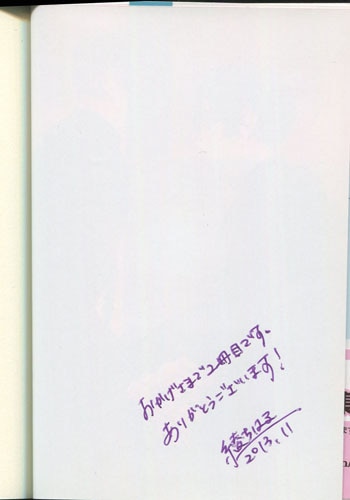 おかげさまで2冊目です。
ありがとうございます!
綾ちはる
2013.11